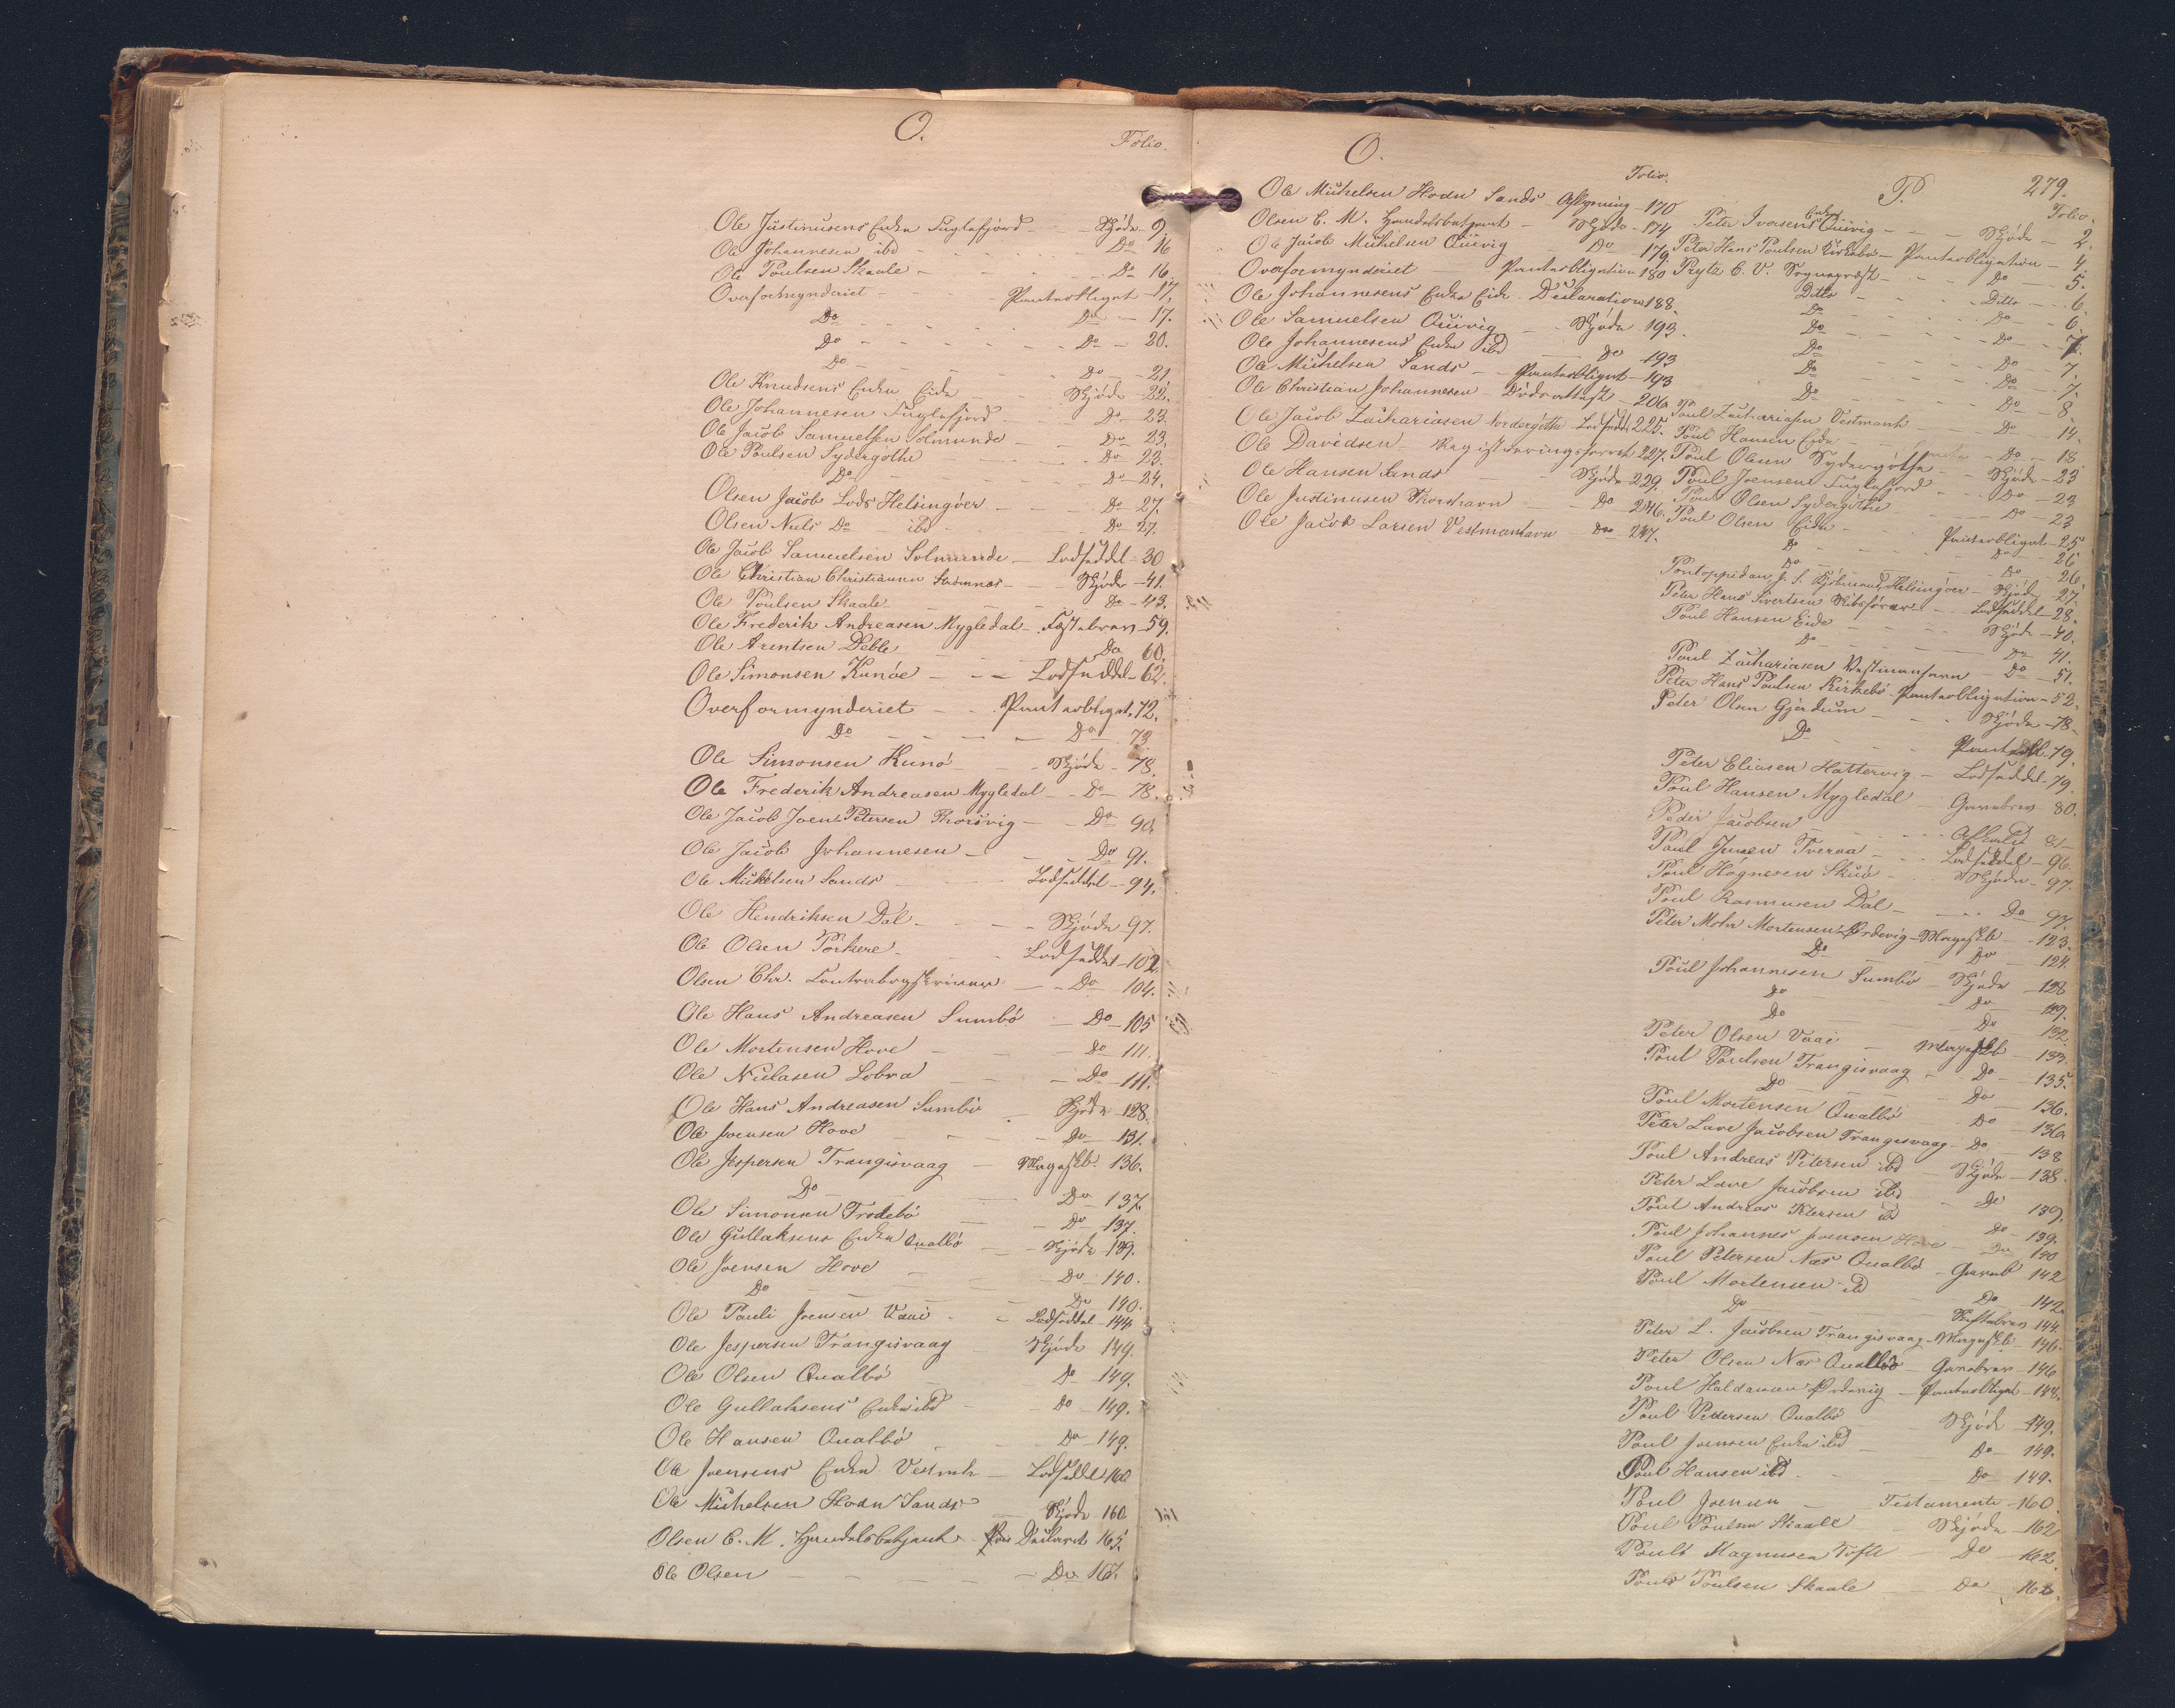 O.
Folio.
Ole Justinusens Enke Fuglefjord - Skjöde 9.
Ole Johannesen ibd - Do 16
Ole Poulsen Skaale - Do 16.
Overformynderiet - Panteobligat - 17.
Do - Do - 17.
Do - Do - 20.
Do - Do - 21
Ole Knudsens Enke Eide - Skjöde 22.
Ole Johannesen Fuglefjord - Do - 23.
Ole Jacob Samuelsen Solmunde - Do 23.
Ole Poulsen Sydergöthe - Do 23.
Do - Do - 24.
Olsen Jacob Lods Helsingöer - Do - 27.
Olsen Niels Do ibd - Do 27.
Ole Jacob Samuelsen Solmunde - Lodseddel - 30
Ole Christian Christiansen Strömnæs - Skjöde - 41.
Ole Poulsen Skaale - Do - 43.
Ole Frederik Andreasen Mygledal - Fæstebrev - 59.
Ole Arentsen Deble - Do 60.
Ole Simonsen Kunöe - Lodseddel - 62.
Overformynderiet - Panteobligat. 72.
Do - Do 73
Ole Simonsen Kunö - Skjöde - 78.
Ole Frederik Andreasen Mygledal - Do - 78.
Ole Jacob Joen Petersen Thorsvig - Do 90.
Ole Jacob Johannesen - Do 91.
Ole Mickelsen Sands - Lodseddel - 94.
Ole Hendriksen Dal - Skjöde 97.
Ole Olsen Porkere - Lodseddel - 102.
Olsen Chr. Contrabogskriver - Do 104.
Ole Hans Andreasen Sumbö - Do - 105
Ole Mortensen Hove - Do 111.
Ole Niclasen Lobra - Do - 111.
Ole Hans Andreasen Sumbö - Skjöde 128.
Ole Joensen Hove - Do - 131.
Ole Jespersen Trangisvaag - Mageskb. 136.
Do - Do 137.
Ole Simonsen Frodebö - Do - 137.
Ole Gullaksens Enke Qualbö - Skjöde - 139.
Ole Joensen Hove - Do - 140.
Do - Do - 140.
Ole Pauli Joensen Vaai - Lodseddel - 144
Ole Jespersen Trangisvaag - Skjöde 149.
Ole Olsen Qualbö - Do - 149.
Ole Gullaksens Enke ibd - Do - 149.
Ole Hansen Qualbö - Do - 149.
Ole Joensens Enke Vestmh - Lodseddel 160
Ole Michelsen Hodn Sands - Skjöde 160
Olsen C. M. Handelsbetjent - Declarat 165.
Ole Olsen - Do 167.
O.
Folio.
Ole Michelsen Hodn Sands - Aflysning - 170
Olsen C. M. Handelsbetjent - Skjöde - 174
Ole Jacob Michelsen Qvivig - Do - 179.
Overformynderiet - Panteobligation 180
Ole Johannesens Enke Eide - Declaration 188.
Ole Samuelsen Qvivig - Skjöde 193.
Ole Johannesens Enke ibd - Do 193
Ole Michelsen Sands - Panteobligat - 193
Ole Christian Johannesen - Dödsattest - 206.
Ole Jacob Zachariasen Nordergöthe - Lodseddel 225.
Ole Davidsen - Registreringsforret 227.
Ole Hansen Sands - Skjöde - 229.
Ole Justinusen Thorshavn - Do - 246.
Ole Jacob Larsen Vestmanhavn - Do - 247.
P.
279.
Folio.
Peter Ivarsens Enke Qvivig - Skjöde - 2.
Peter Hans Poulsen Kirkebö - Panteobligation - 4.
Prytz C. V. Sognepræst - Do - 5.
Ditto - Ditto - 6.
Do - Do - 6.
Do - Do - 7.
Do - Do - 7.
Do - Do - 7.
Do - Do - 8.
Poul Zachariasen Vestmanh - Do 14.
Poul Hansen Eide - Do - 18
Poul Olsen Sydergöthe - Skjöde - 23
Poul Joensen Fuglefjord - Do - 23
Poul Olsen Sydergöthe - Do - 23
Poul Olsen Eide - Panteobligat - 25
Do - Do - 26
Do - Do - 26.
Pontoppidan J. S. Kjöbmand Helsingöer - Skjöde - 27.
Peter Hans Sivertsen Skibsförer - Lodseddel - 28.
Poul Hansen Eide - Skjöde - 40.
Do - Do 41.
Poul Zachariasen Vestmanhavn - Do - 51.
Peter Hans Poulsen Kirkebö - Panteobligation - 52.
Peter Olsen Gjerdum - Skjöde - 78.
Do - Panteobl. 79.
Peter Eliasen Hattervig - Lodseddel - 79.
Poul Hansen Mygledal - Gavebrev 80.
Peder Jacobsen - Afkald 81
Poul Jensen Tveraa - Lodseddel - 96.
Poul Högnesen Skuö - Skjöde - 97.
Poul Rasmusen Dal - Do 97.
Peter Mohr Mortensen Ördevig - Mageskb - 123.
Do - Do - 124.
Poul Johannesen Sumbö - Skjöde - 128
Do - Do - 129.
Do - Do 132.
Peter Olsen Vaai - Mageskb - 133.
Poul Poulsen Trangisvaag - Do - 135.
Do - Do - 136.
Poul Mortensen Qualbö - Do - 136
Peter Lave Jacobsen Trangisvaag - Do - 138
Poul Andreas Petersen ibd - Skjöde - 138.
Peter Lave Jacobsen ibd - Do 139.
Poul Andreas Petersen ibd - Do - 139.
Poul Johannes Joensen Hove - Do 140
Poul Petersen Næs Qualbö - Gaveb 142
Poul Mortensen ibd - Do - 142.
Do - Skiftebrev 144.
Peter L. Jacobsen Trangisvaag - Mageskb - 146.
Peter Olsen Næs Qualbö - Gavebrev - 146
Poul Haldansen Ördevig - Panteobligat - 148.
Poul Petersen Qualbö - Skjöde - 149.
Poul Joensen Enke ibd - Do - 149.
Poul Hansen ibd - Do - 149.
Poul Joensen - Testamente - 160.
Poul Poulsen Skaale - Skjöde - 162
Poul Magnusen Tofte - Do 162.
Poul Poulsen Skaale - Do 162.